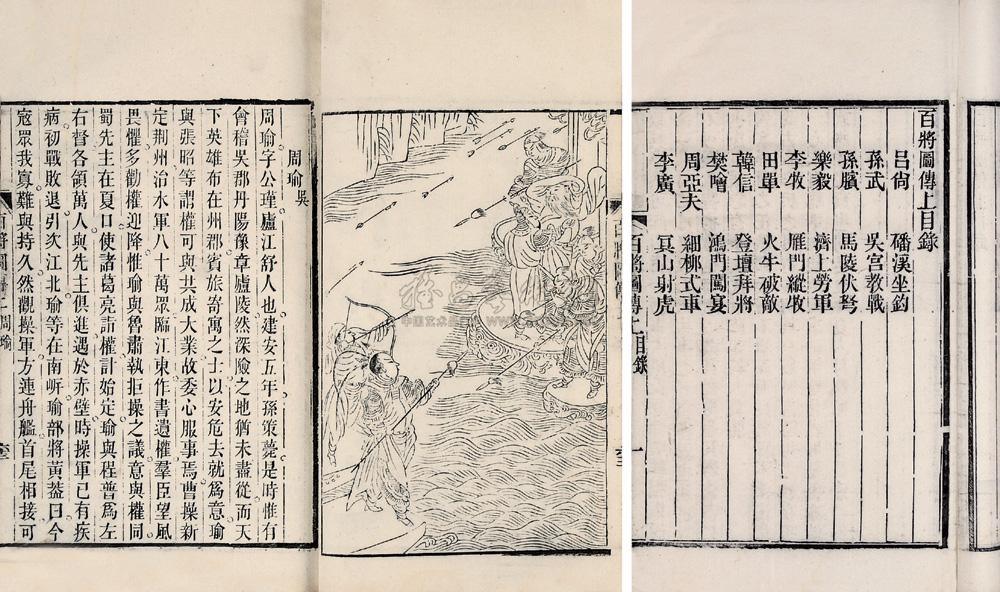 百將圖傳上目錄
呂尙 磻溪坐釣
孫武 吳宮敎戰
孫臏 馬陵伏弩
樂毅 濟上勞軍
李牧 雁門縱牧
田單 火牛破敵
韓信 登壇拜將
樊噲 鴻門闖宴
周亞夫 細柳式車
李廣 冥山射虎
百將圖傳上目錄
一
百將圖傳
周瑜吳
周瑜字公瑾廬江舒人也建安五年孫策薨是時惟有
會稽吳郡丹陽豫章廬陵然深險之地猶未盡從而天
下英雄布在州郡賓旅寄寓之士以安危去就爲意瑜
與張昭等謂權可與共成大業故委心服事焉曹操新
定荆州治水軍八十萬眾臨江東作書遺權羣臣望風
畏懼多勸權迎降惟瑜與魯肅執拒操之議意與權同
蜀先主在夏口使諸葛亮詣權計始定瑜與程普爲左
右督各領萬人與先主俱進遇於赤壁時操軍已有疾
病初戰敗退引次江北瑜等在南岍瑜部將黃蓋曰今
寇眾我寡難與持久然觀操軍方連舟艦首尾相接可
百將圖傳二周瑜